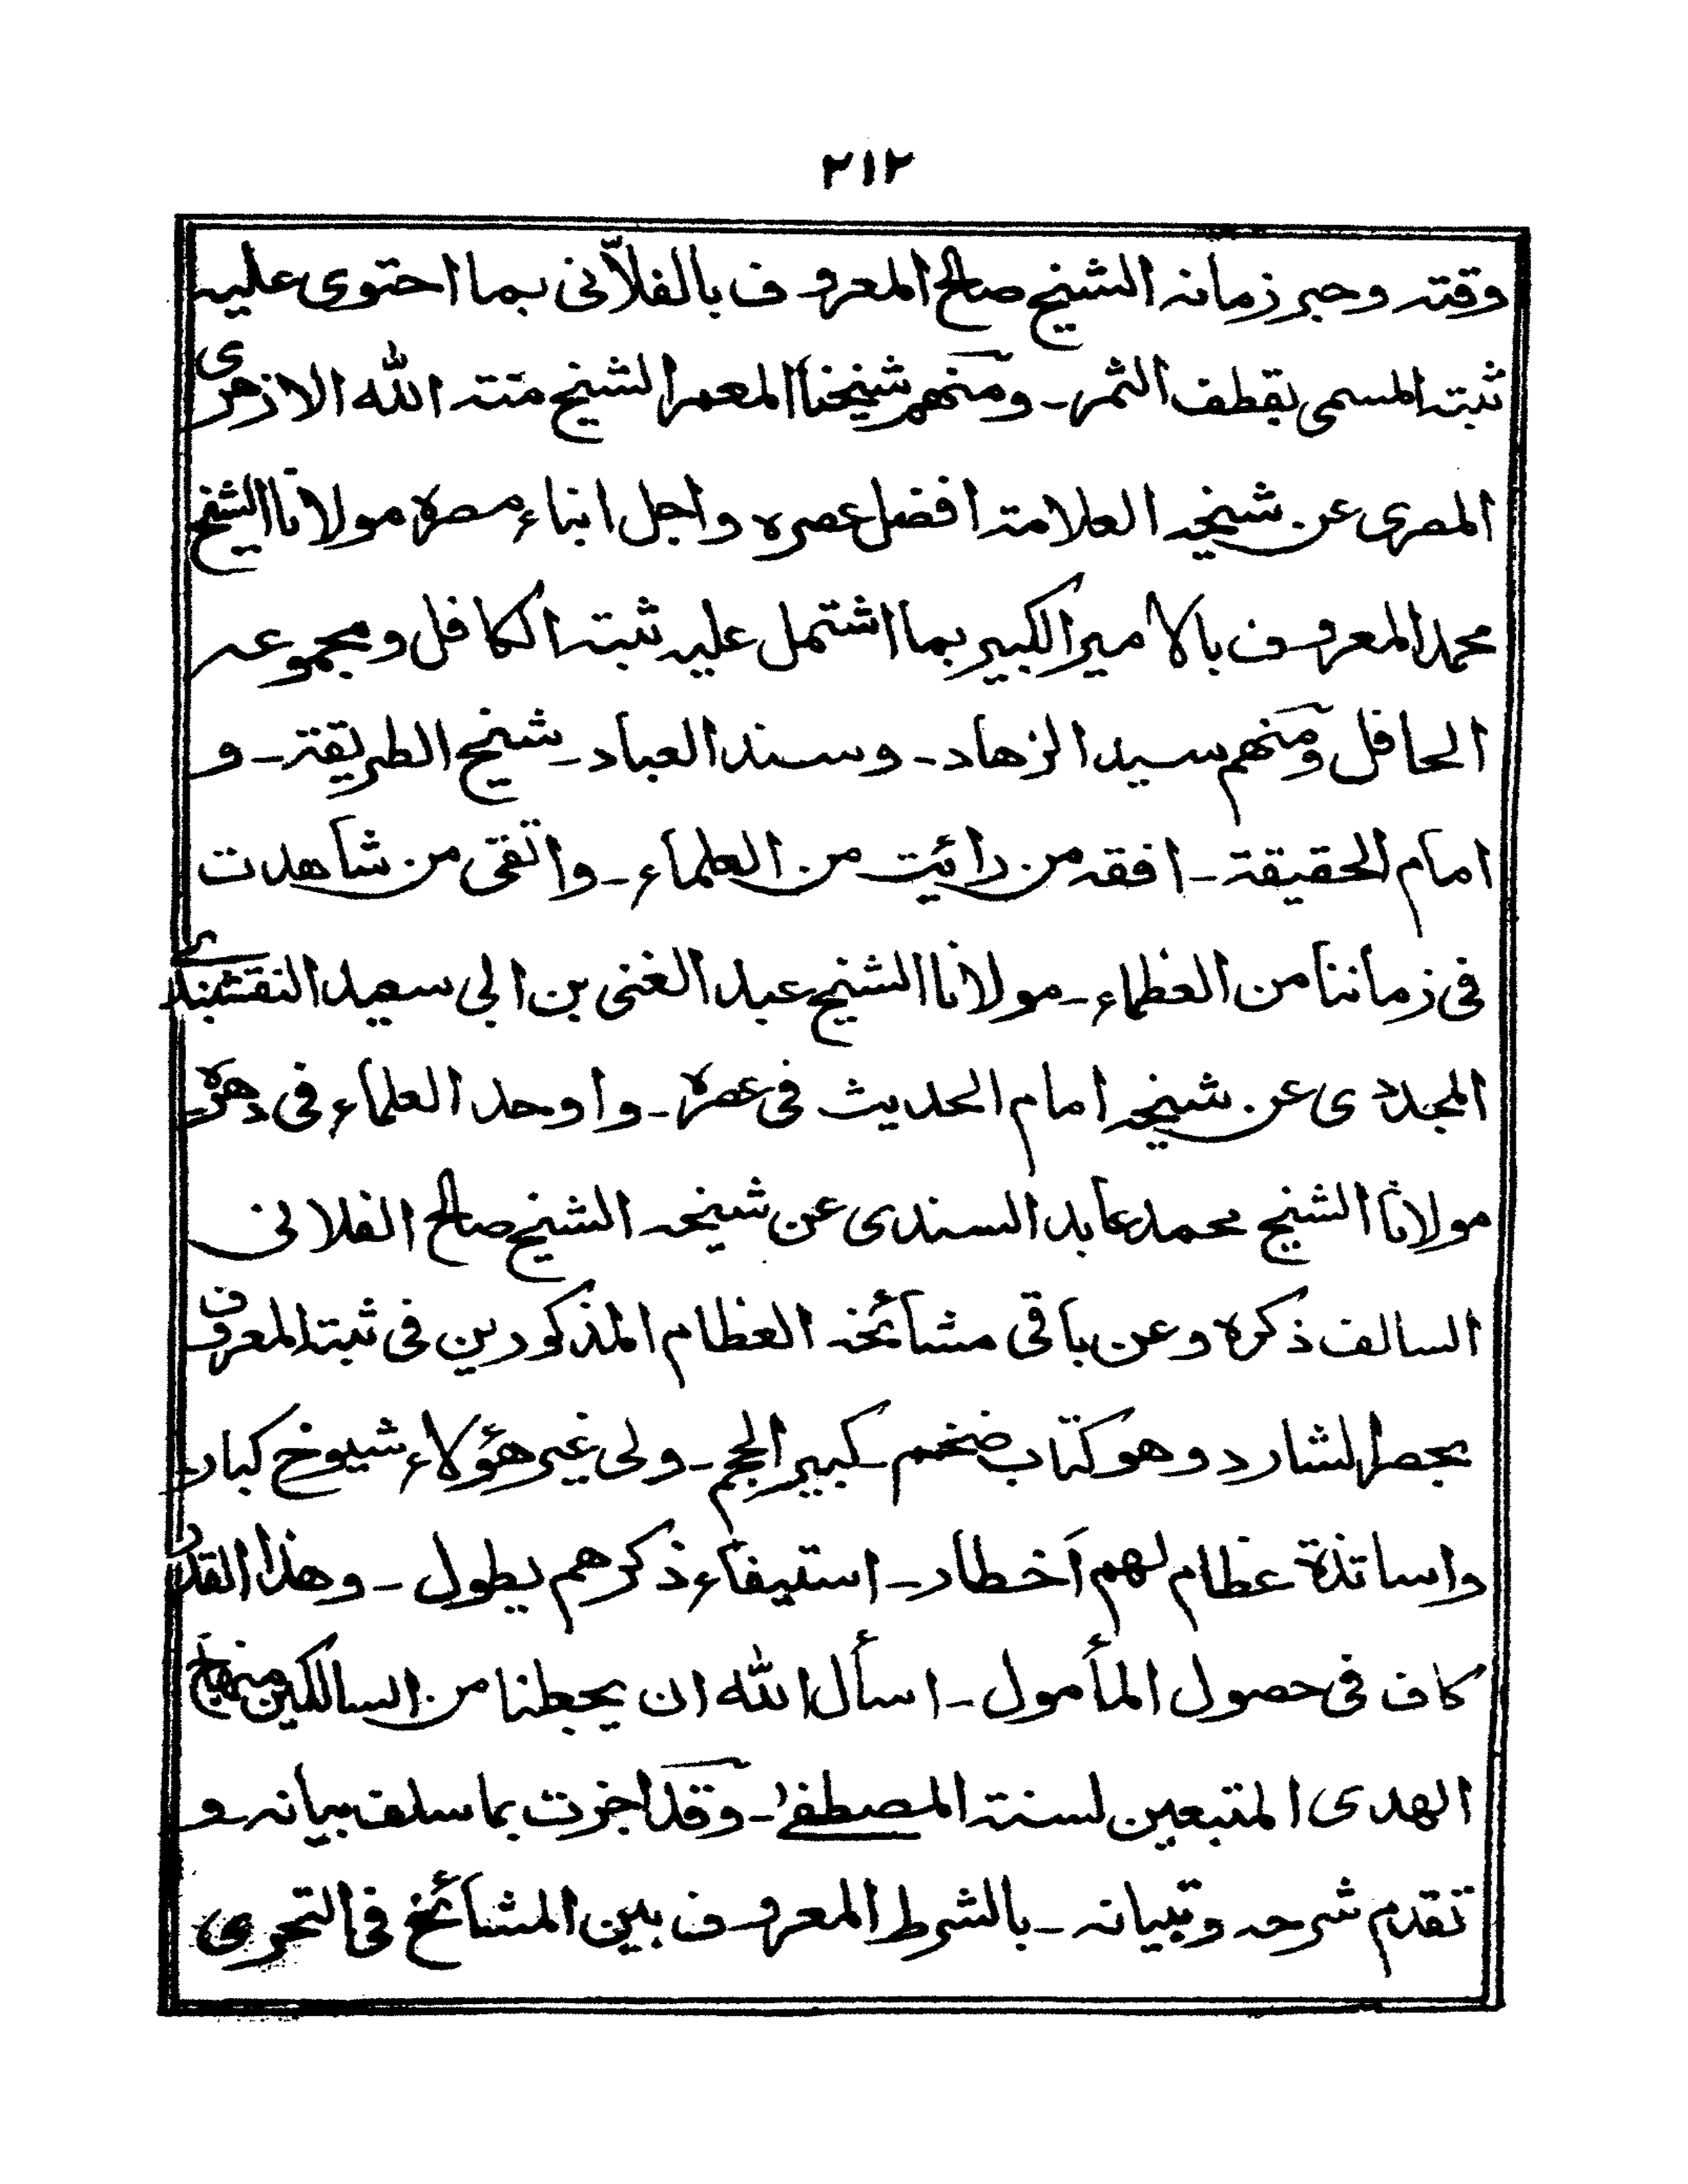 ٢١٢
وقته وحبر زمانه الشيخ صالح المعروف بالفلاّنى بما احتوى عليه
ثبته المسمى بقطف الثمر ـ ومنهم شيخنا المعمر الشيخ منته الله الازهرى
المصرى عن شيخه العلامة افضل عصره واجل ابناء مصره مولانا الشيخ
محمد المعروف بالامير الكبير بما اشتمل عليه ثبته الكافل ومجموعه
الحافل ومنهم سيد الزهاد ـ وسند العباد ـ شيخ الطريقة ـ و
امام الحقيقة ـ افقه من رائيت من العلماء ـ واتقى من شاهدت
فى زماننا من العظماء ـ مولانا الشيخ عبد الغنى بن ابى سعيد النقشبندى
المجددى عن شيخه امام الحديث فى عصره ـ واوحد العلماء فى دهره
مولانا الشيخ محمد عابد السندى عن شيخه الشيخ صالح الفلانى
السالف ذكره وعن باقى مشائخه العظام المذكورين فى ثبته المعروف
بحصر الشارد وهو كتاب ضخم كبير الحجم ـ ولى غير هؤلاء شيوخ كبار
واساتذة عظام لهم اَخطار ـ استيفاء ذكرهم يطول ـ وهذا القدر
كاف فى حصول المأمول ـ اسأل الله ان يجعلنا من السالكين منهاج
الهدى المتبعين لسنة المصطفےٰ ـ وقد اجزت بما سلف بيانه و
تقدم شرحه وتبيانه ـ بالشرط المعروف بين المشائخ فى التحرى